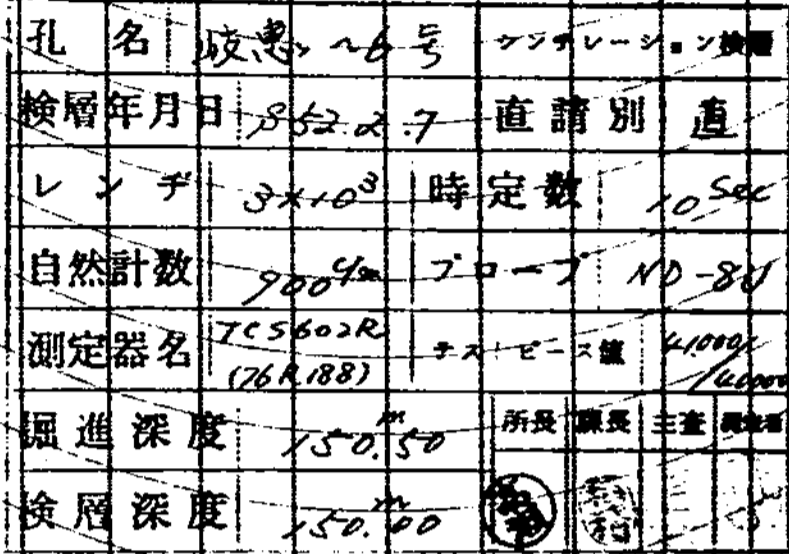 孔名 岐恵〜6号 シンチレーション検層
検層年月日 S52.2.7 直請別 直
レンヂ 3×10³ 時定数 10 sec
自然計数 900 プローブ ND-8U
測定器名 TCS602R (76R188) テストピース値 41000/40000
掘進深度 150.50m 所長 課長 主査 調査者
検層深度 150.00m